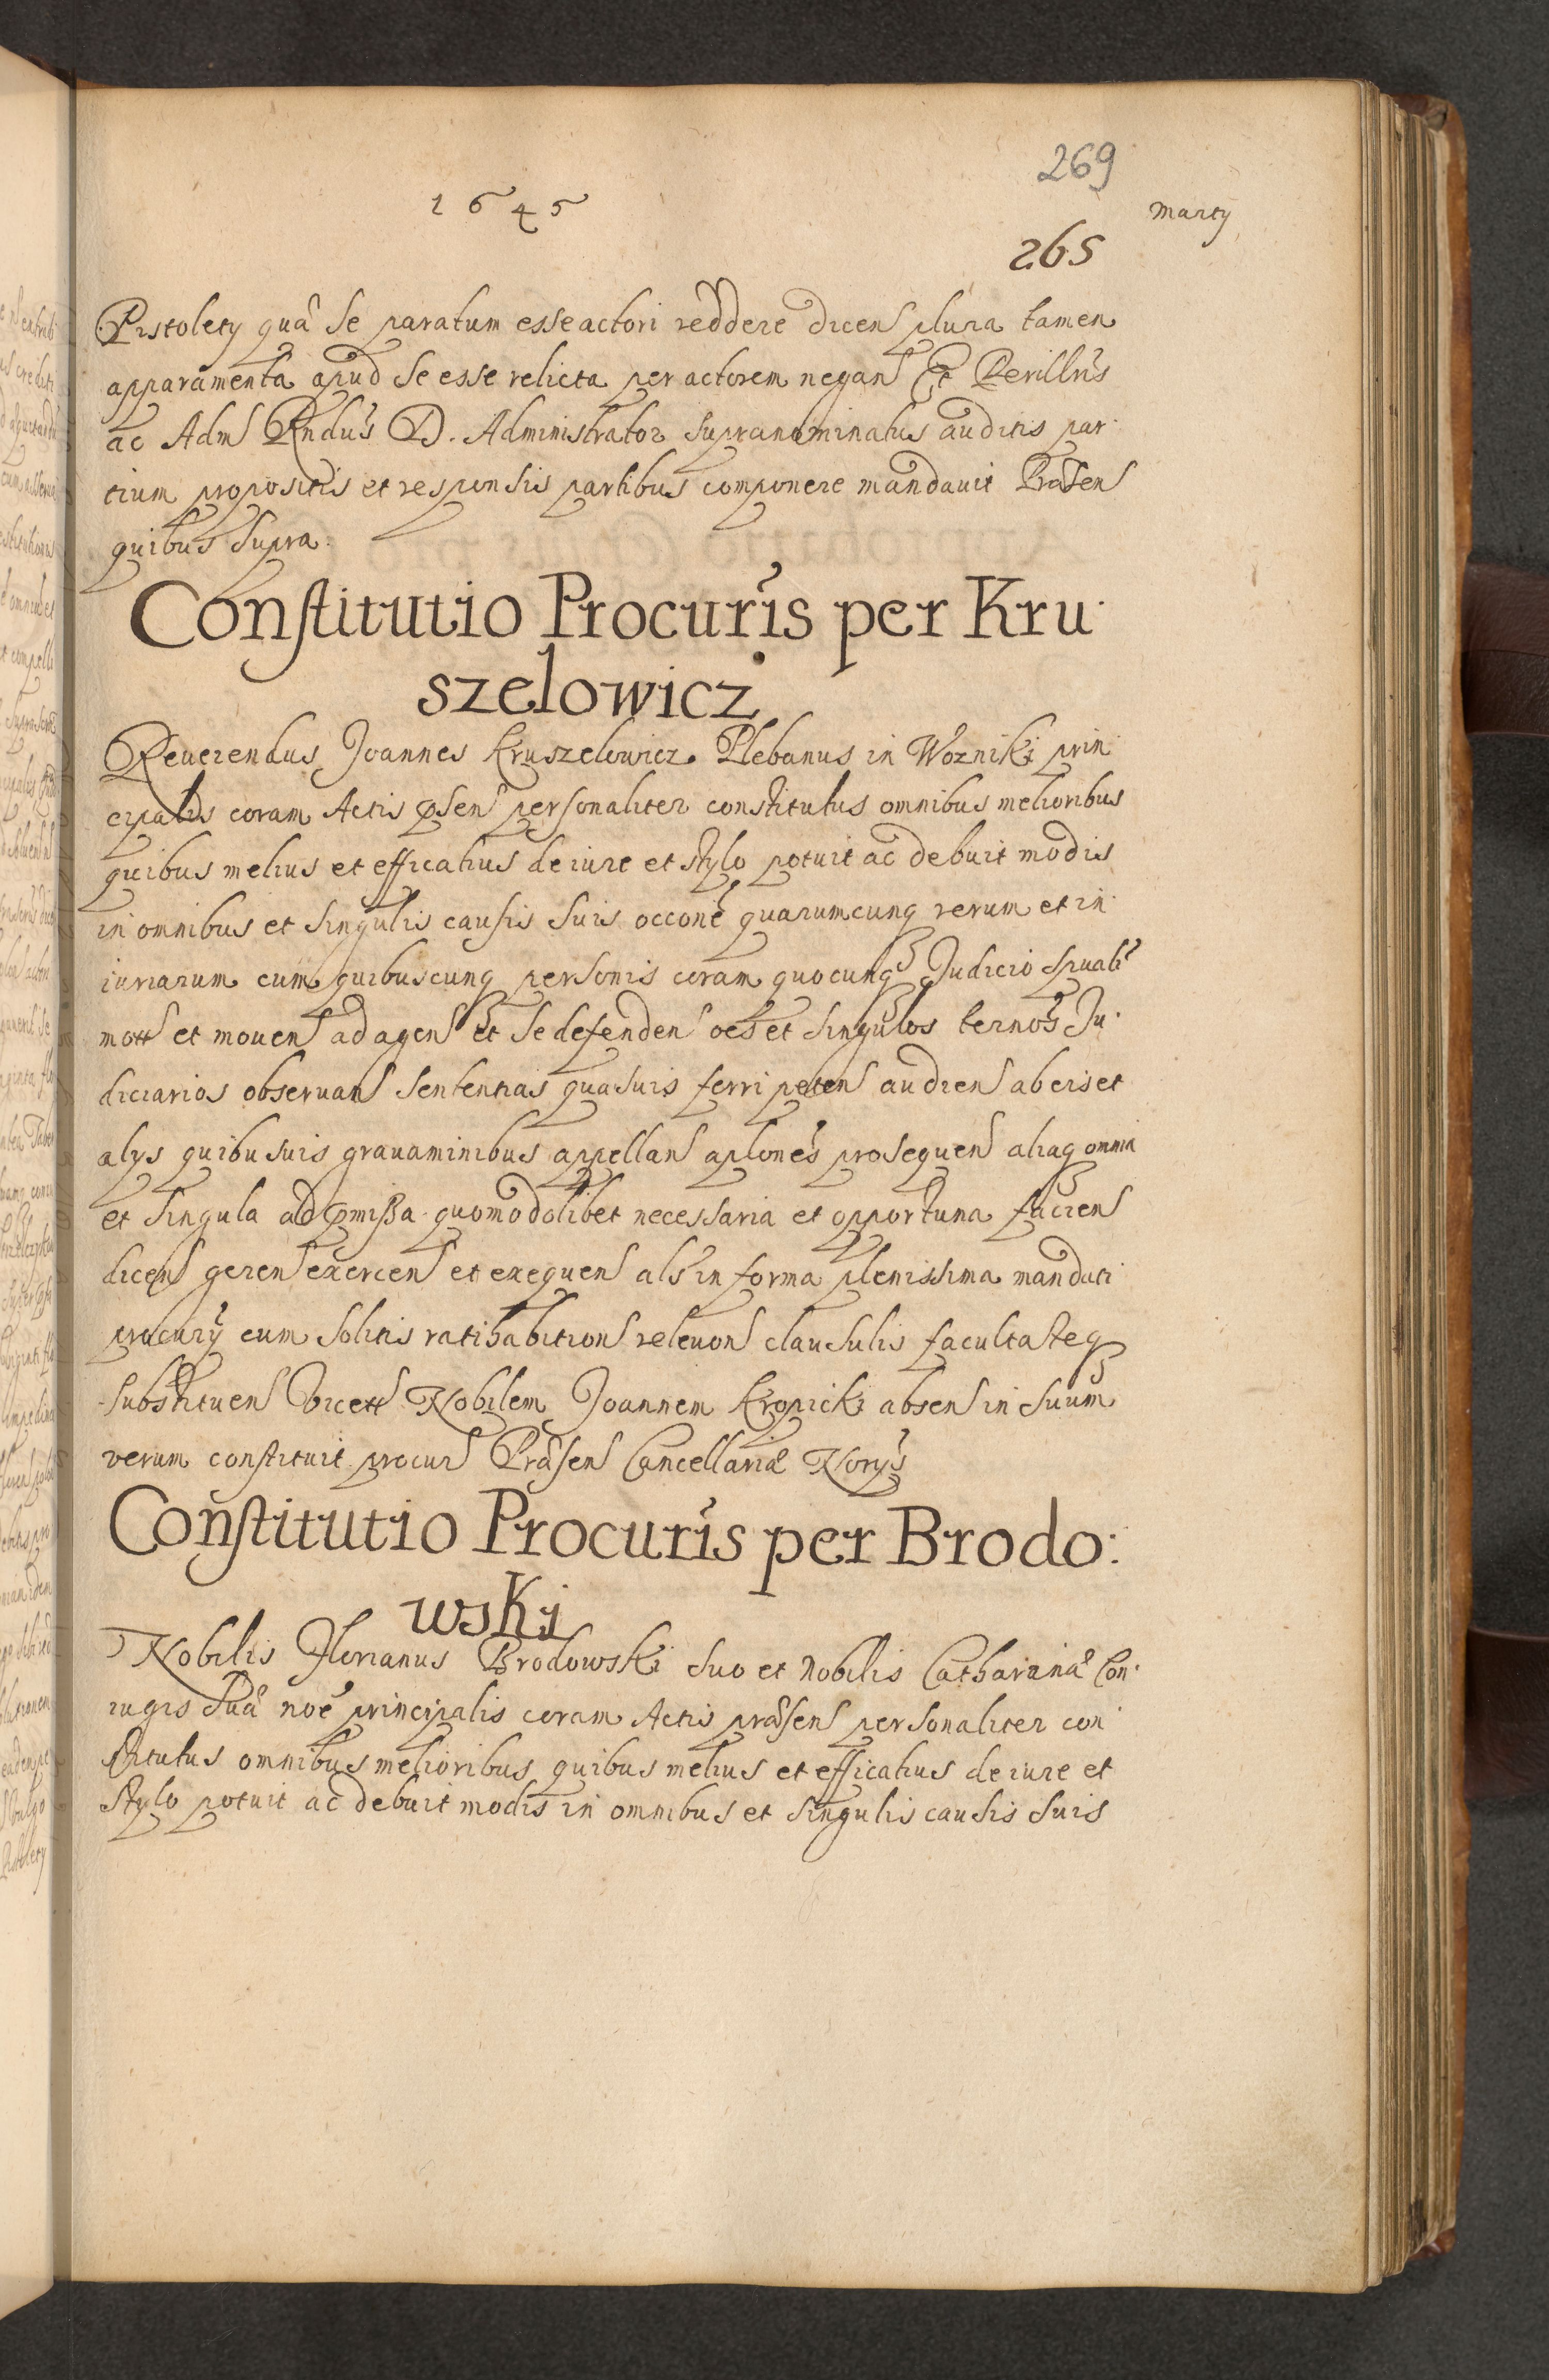 269
1645
Marty
265
Pistolety quã se paratum esse actori reddere dicens plura tamen
apparamenta apud se esse relicta per actorem negans Et Perillris
ac Adm Rndus D. Administrator supranominatus auditis par
tium propositis et responsis partibus componere mandauit Præsen
quibus supra.
Constitutio Procuris per Kru
szelowicz
Reuerendus Joannes Kruszelowicz Plebanus in Wozniki prin
cipalis coram Actis psen personaliter constitutus omnibus melioribus
quibus melius et efficatius de iure et stylo potuit ac debuit modis
in omnibus et singulis causis suis occone quarumcunq rerum et in
iuriarum cum quibuscunq personis coram quocunq Judicio spuali
mott et mouen ad agen et se defenden oes et singulos ternos Ju
diciarios obseruan sententias quasuis ferri peten audien ab eis et
alys quibusuis grauaminibus appellan aplones prosequen aliaq omnia
et singula ad pmissa quomodolibet necessaria et opportuna facien
dicen geren exercen et exequen als in forma plenissima mandati
procury cum solitis ratihabition releuon clausulis facultateq
substituen vicett Nobilem Joannem Kropicki absen in suum
verum constituit procur Præsen Cancellariæ Norys
Constitutio Procuris per Brodo:
wski
Nobilis Florianus Brodowski suo et nobilis Catharinæ Con
iugis suæ noe principalis coram Actis præsen personaliter con
stitutus omnibus melioribus quibus melius et efficatius de iure et
stylo potuit ac debuit modis in omnibus et singulis causis suis